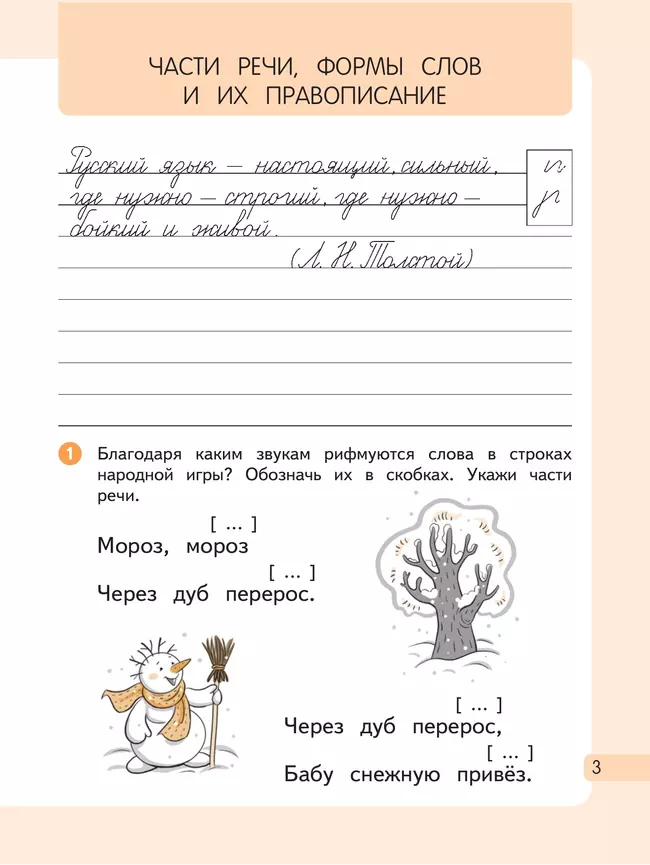 ЧАСТИ РЕЧИ, ФОРМЫ СЛОВ
И ИХ ПРАВОПИСАНИЕ
Русский язык — настоящий, сильный,
где нужно — строгий, где нужно —
бойкий и живой.
(Л. Н. Толстой)
1 Благодаря каким звукам рифмуются слова в строках
народной игры? Обозначь их в скобках. Укажи части
речи.
[ ... ]
Мороз, мороз
[ ... ]
Через дуб перерос.
[ ... ]
Через дуб перерос,
[ ... ]
Бабу снежную привёз.
3